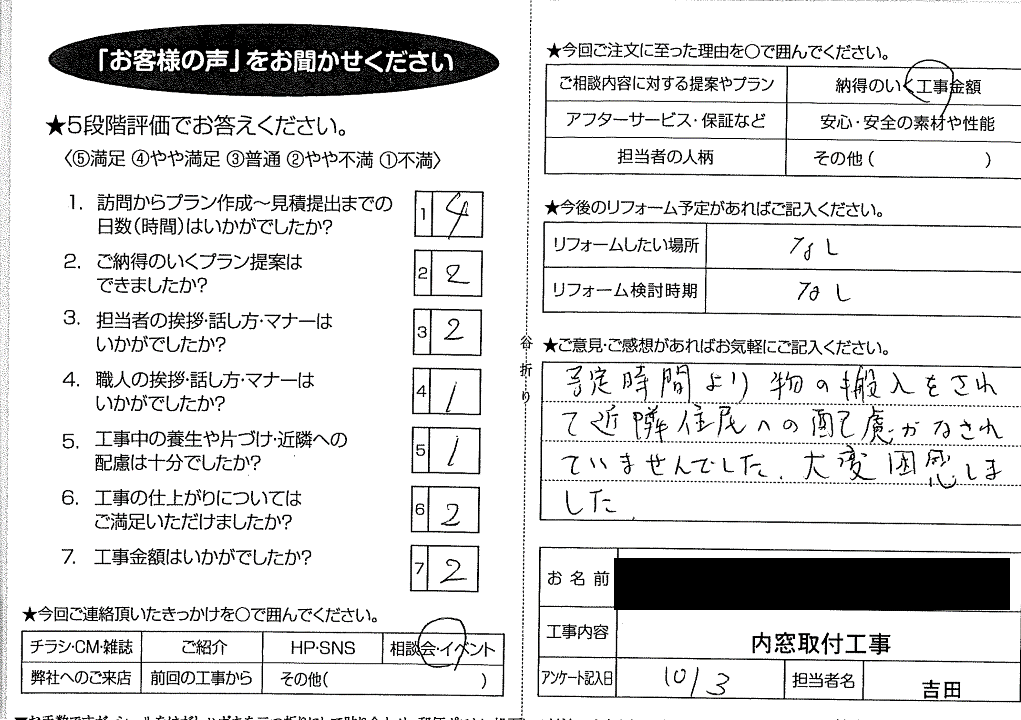 「お客様の声」をお聞かせください
★5段階評価でお答えください。
〈⑤満足 ④やや満足 ③普通 ②やや不満 ①不満〉
1. 訪問からプラン作成～見積提出までの
日数(時間)はいかがでしたか?
1 4
2. ご納得のいくプラン提案は
できましたか?
2 2
3. 担当者の挨拶・話し方・マナーは
いかがでしたか?
3 2
4. 職人の挨拶・話し方・マナーは
いかがでしたか?
4 1
5. 工事中の養生や片づけ・近隣への
配慮は十分でしたか?
5 1
6. 工事の仕上がりについては
ご満足いただけましたか?
6 2
7. 工事金額はいかがでしたか?
7 2
★今回ご連絡頂いたきっかけを○で囲んでください。
チラシ・CM・雑誌 ご紹介 HP・SNS 相談会・イベント
弊社へのご来店 前回の工事から その他( )
谷折り
★今回ご注文に至った理由を○で囲んでください。
ご相談内容に対する提案やプラン 納得のいく工事金額
アフターサービス・保証など 安心・安全の素材や性能
担当者の人柄 その他( )
★今後のリフォーム予定があればご記入ください。
リフォームしたい場所 なし
リフォーム検討時期 なし
★ご意見・ご感想があればお気軽にご記入ください。
予定時間より物の搬入をされ
て近隣住民への配慮がなされ
ていませんでした。大変困惑しま
した。
お名前
工事内容 内窓取付工事
アンケート記入日 10/3 担当者名 吉田